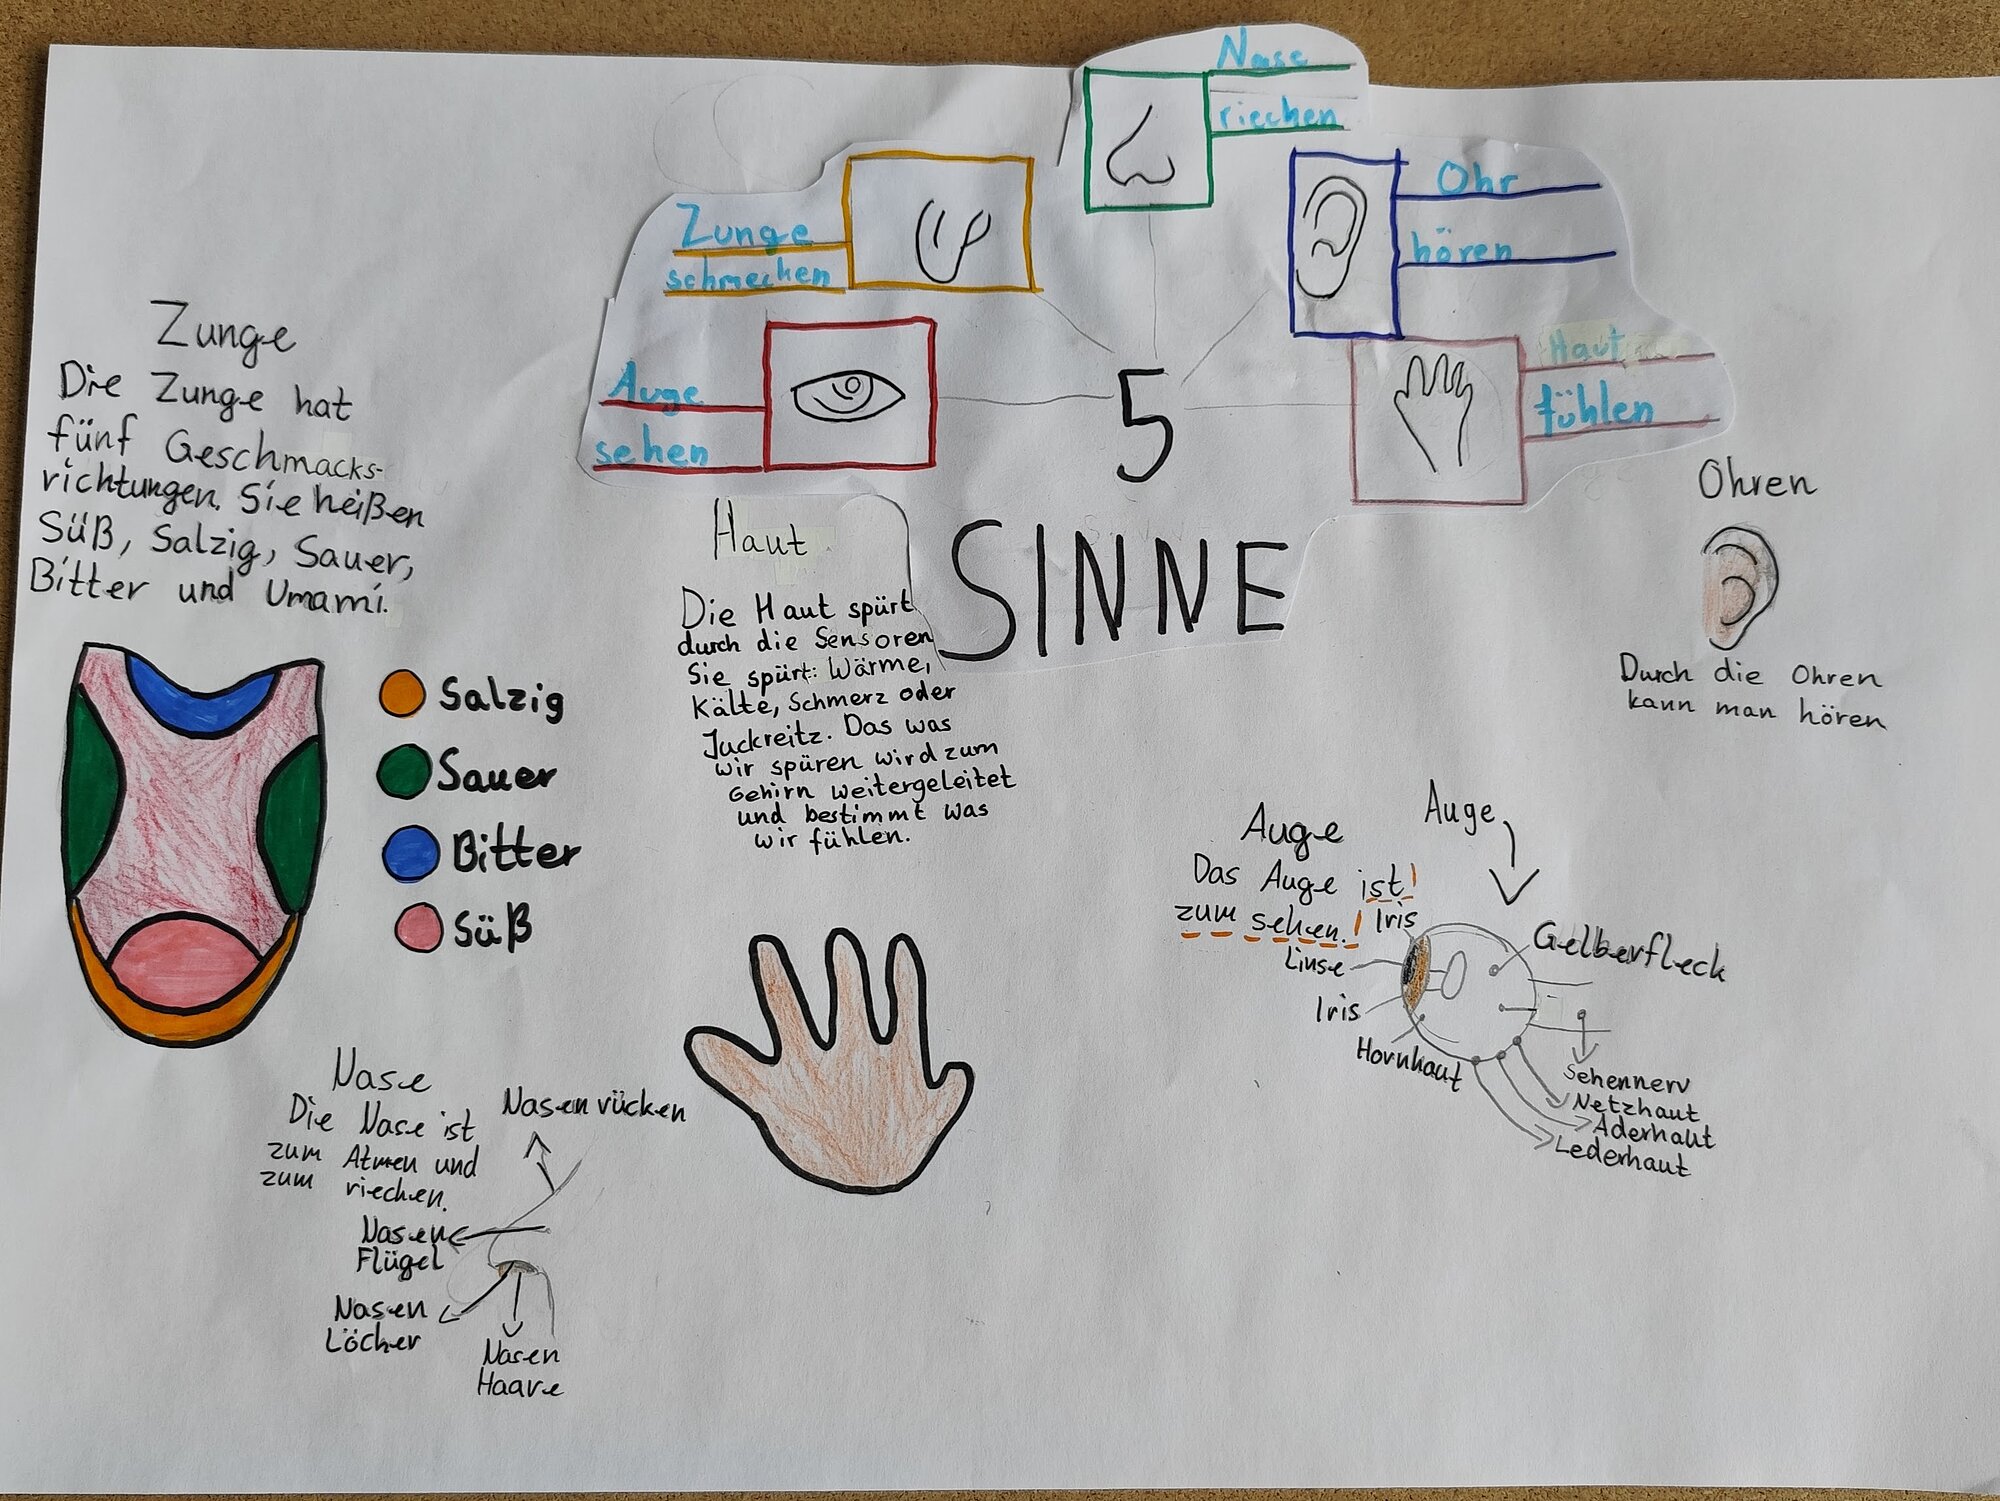 Nase
riechen
Zunge
schmecken
Ohr
hören
Auge
sehen
Haut
fühlen
5
SINNE
Zunge
Die Zunge hat
fünf Geschmacks-
richtungen. Sie heißen
Süß, Salzig, Sauer,
Bitter und Umami.
Salzig
Sauer
Bitter
Süß
Haut
Die Haut spürt
durch die Sensoren
Sie spürt: Wärme,
Kälte, Schmerz oder
Juckreitz. Das was
wir spüren wird zum
Gehirn weitergeleitet
und bestimmt was
wir fühlen.
Ohren
Durch die Ohren
kann man hören
Auge
Auge
Das Auge ist!
zum sehen.!
Iris
Linse
Iris
Hornhaut
Gelberfleck
Sehennerv
Netzhaut
Aderhaut
Lederhaut
Nase
Die Nase ist
zum Atmen und
zum riechen.
Nasenrücken
Nasen
Flügel
Nasen
Löcher
Nasen
Haare